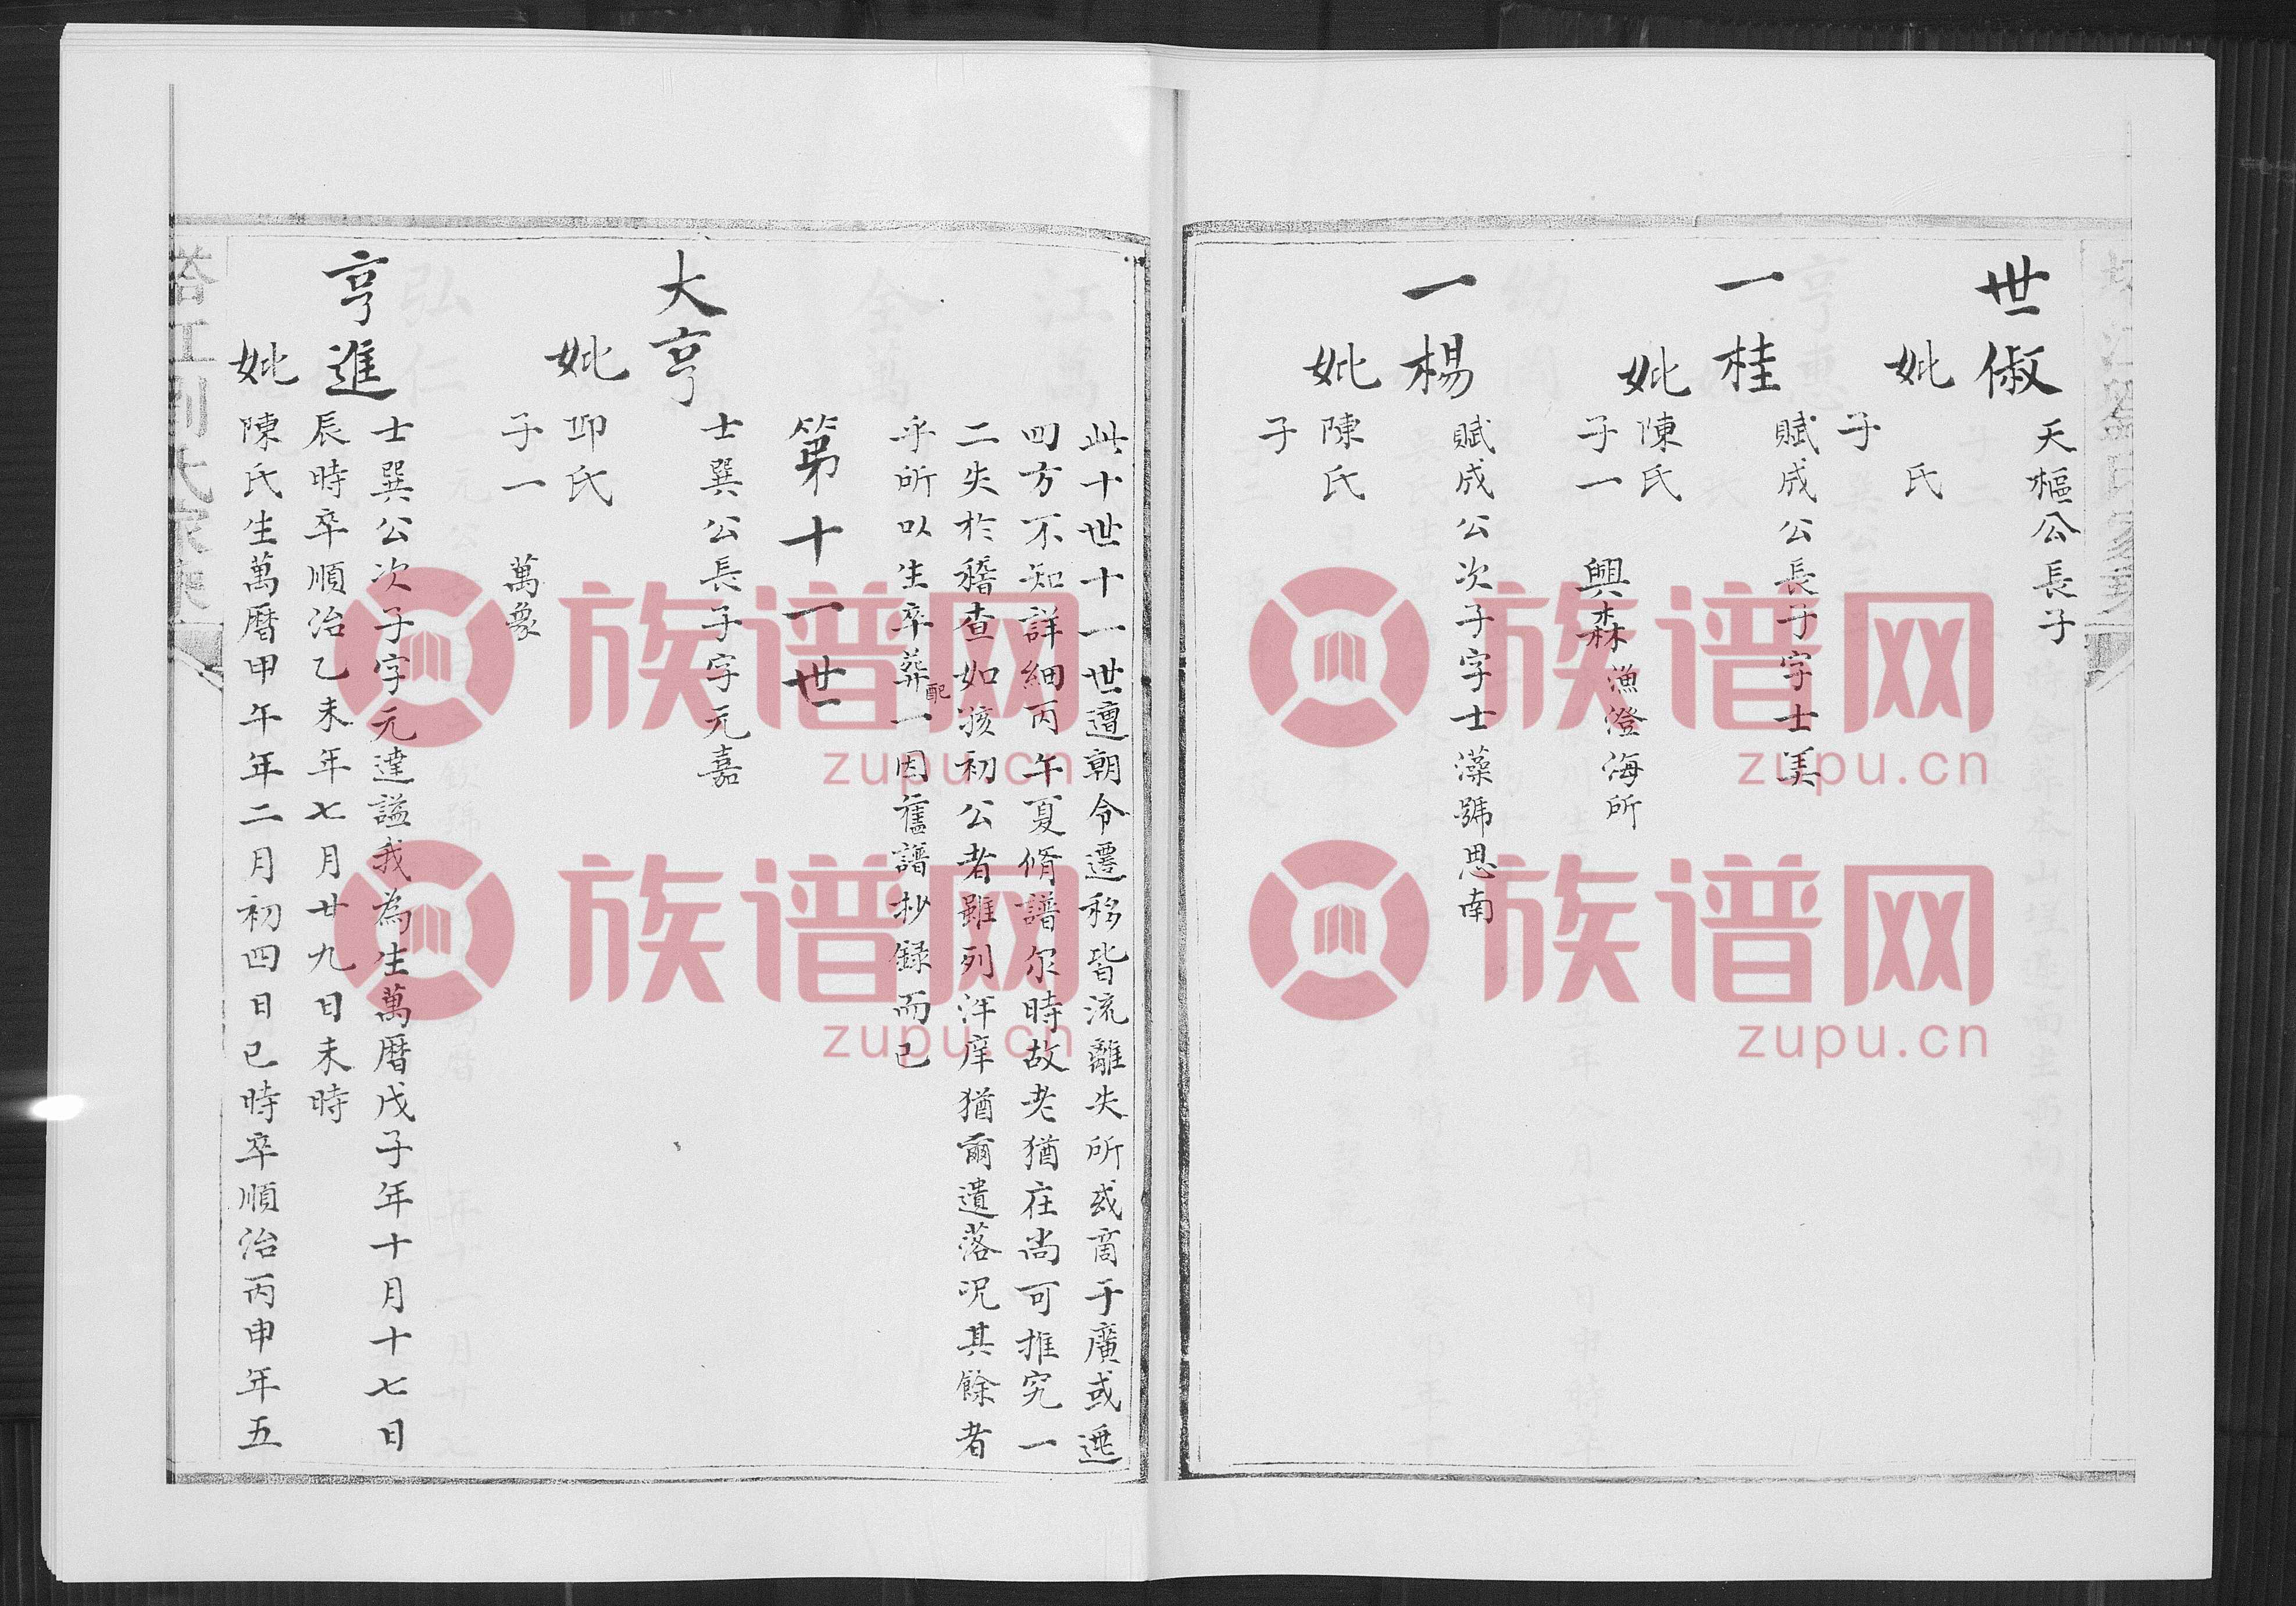 世俶
天樞公長子
妣 氏
子
一桂
賦成公長子字士美
妣陳氏
子一 興森漁澄海所
一楊
賦成公次子字士藻號思南
妣陳氏
子
此十世十一世遭朝令遷移皆流離失所或商于廣或遯
四方不知詳細丙午夏脩譜尔時故老猶在尚可推究一
二失於稽查如㳄初公者雖列泮庠猶爾遺落况其餘者
乎所以生卒葬配一因舊譜抄録而已
第十一世
大亨
士巽公長子字元嘉
妣邱氏
子一 萬象
亨進
士巽公次子字元達謚我為生萬曆戊子年十月十七日
辰時卒順治乙未年七月廿九日未時
妣陳氏生萬曆甲午年二月初四日巳時卒順治丙申年五
族谱网
zupu.cn
族谱网
zupu.cn
族谱网
zupu.cn
族谱网
zupu.cn